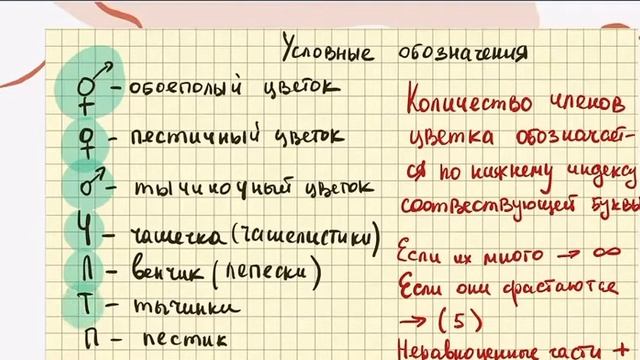 Условные обозначения
⚥ - обоеполый цветок
♀ - пестичный цветок
♂ - тычиночный цветок
Ч - чашечка (чашелистики)
Л - венчик (лепески)
Т - тычинки
П - пестик
Количество членов
цветка обозначает-
ся по нижнему индексу
соотвествующей буквы
Если их много → ∞
Если они срастаются
→ (5)
Неравноценные части +